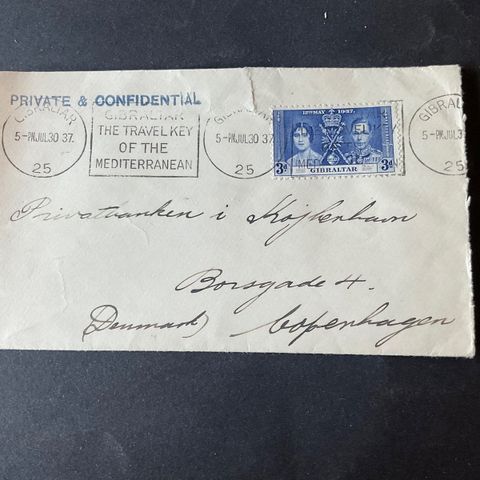 PRIVATE & CONFIDENTIAL
GIBRALTAR
5-PM JUL 30 37.
25
GIBRALTAR
THE TRAVEL KEY
OF THE
MEDITERRANEAN
GIBRALTAR
5-PM JUL 30 37
25
12TH MAY 1937.
3D GIBRALTAR 3D
GIBRALTAR
5-PM JUL 3
25
Privatbanken i Kójbenhavn
Borsgade 4.
(Denmark) Copenhagen